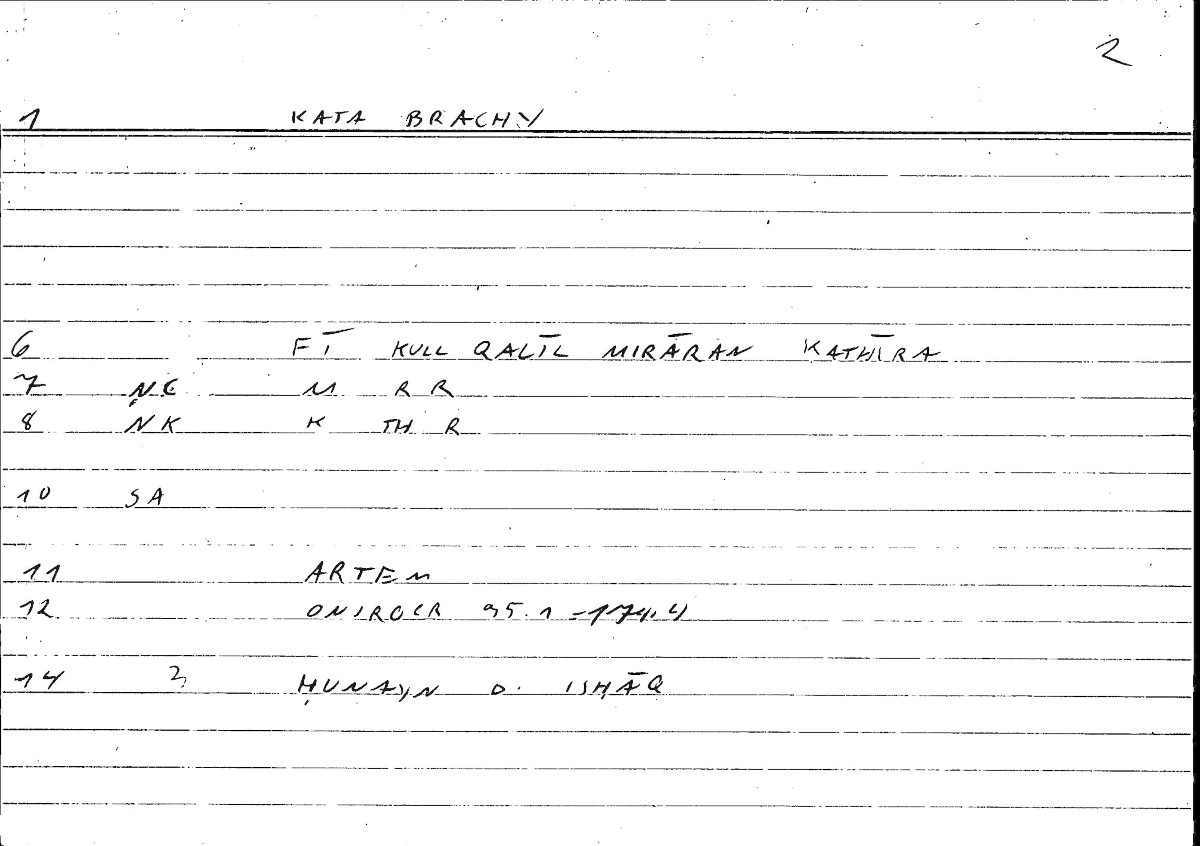 2
1 KATA BRACHY
6 FĪ KULL QALĪL MIRĀRAN KATHĪRA
7 NC M R R
8 NK K TH R
10 SA
11 ARTEM
12 ONIROCR 95.1 - 174.4
14 3 ḤUNAYN B. ISḤĀQ